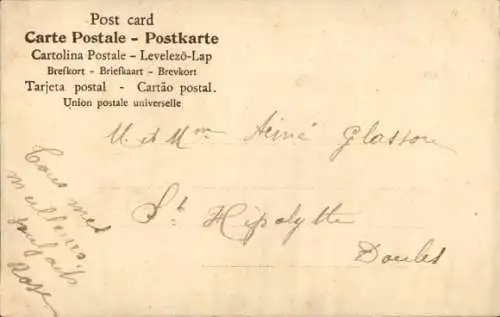 Post card
Carte Postale – Postkarte
Cartolina Postale – Levelező-Lap
Brefkort - Briefkaart - Brevkort
Tarjeta postal - Cartão postal.
Union postale universelle
M. et Mme Aimé Glasson
St Hipolytte
Doubs
Tous mes
meilleurs
souhaits
Rose